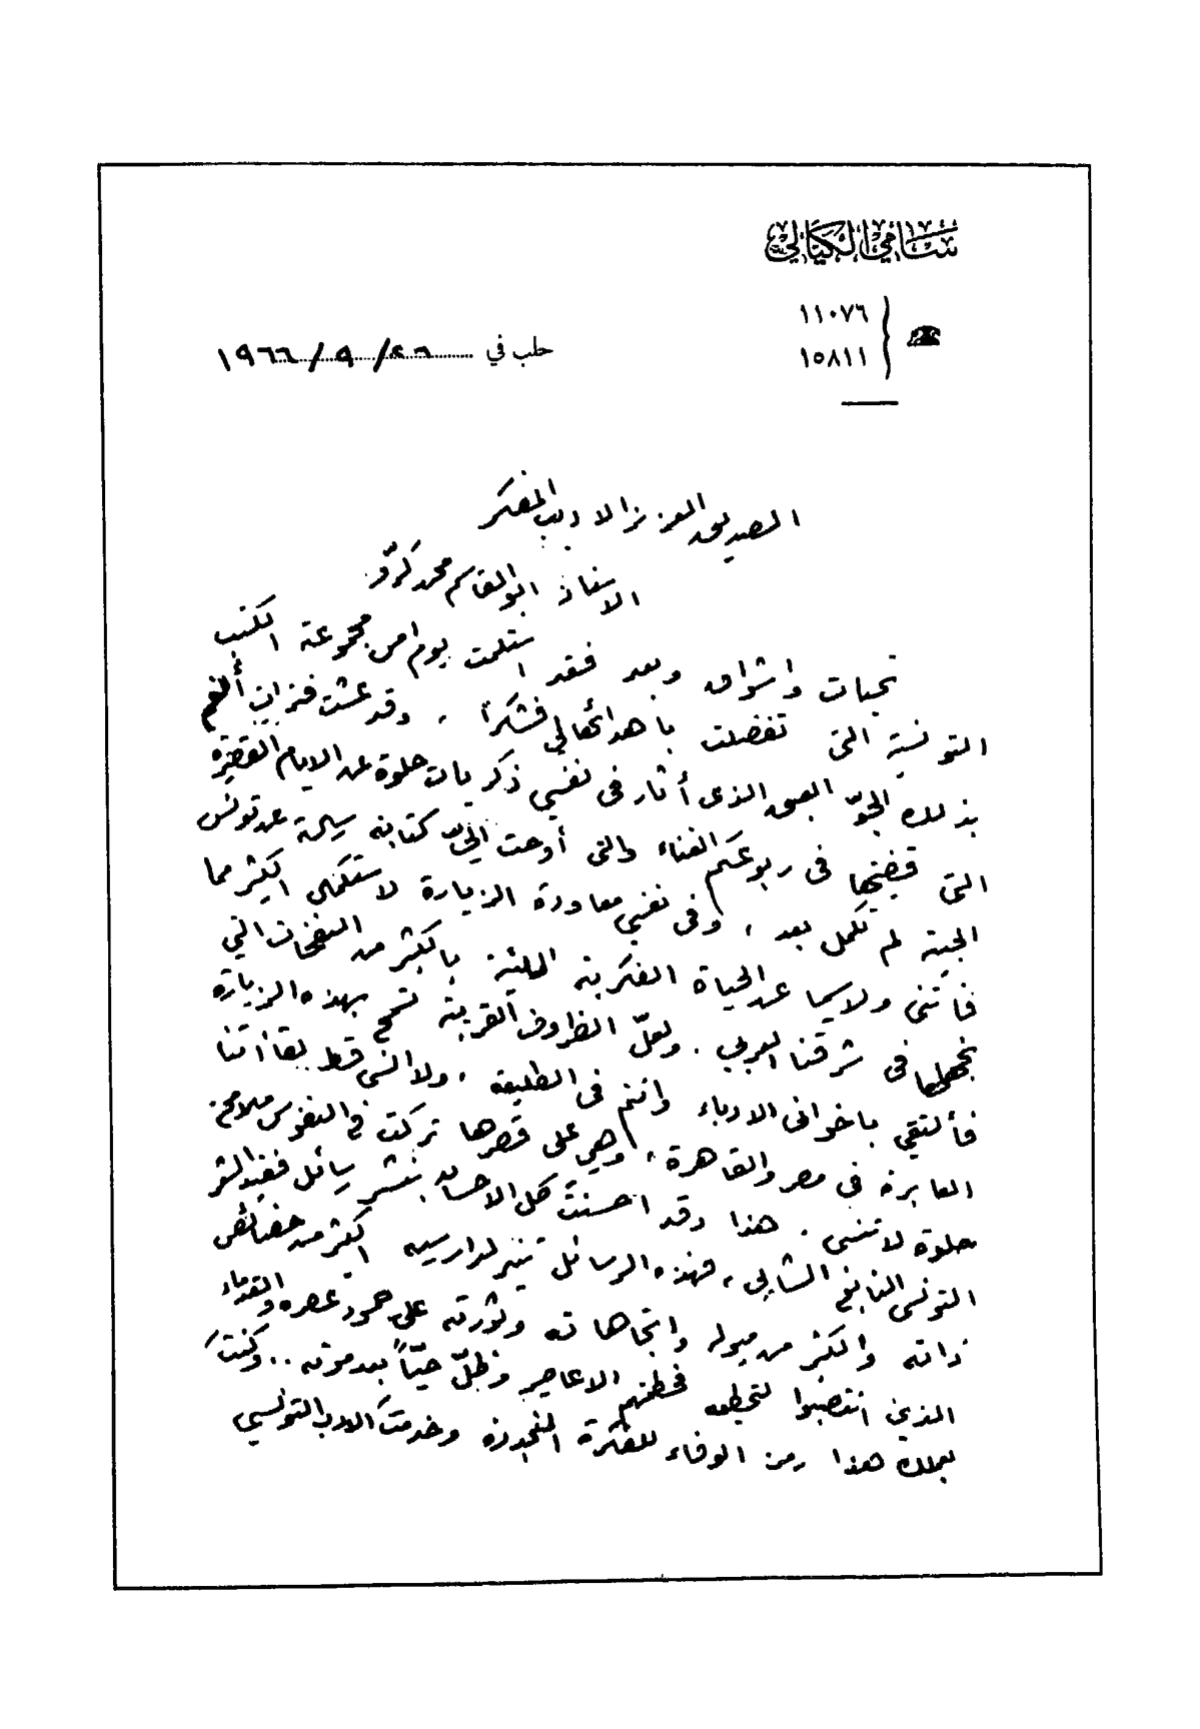 سامي الكيالي
١١٠٧٦
١٥٨١١
حلب في ٢٦ / ٩ / ١٩٦٦
الصديق العزيز الاديب المفكر
الاستاذ ابو القاسم محمد كرّو
تحيات واشواق وبعد فقد استلمت يوم امس مجموعة الكتب
التونسية التي تفضلت باهدائها لي فشكراً ، وقد عشت فترات
بذلك الجوّ العبق الذى أثار فى نفسي ذكريات حلوة عن الايام القصيرة
التى قضيتها فى ربوعكم الغناء والتى أوحت اليّ كتابة عن تونس
لم تكمل بعد ، وفى نفسي معاودة الزيارة لاستكمل الكثير مما
فاتنى ولا سيما عن الحياة الفكرية المليئة بالكثير من النفحات التي
نجهلها فى شرقنا العربي . ولعلّ الظروف القريبة تسمح بهذه الزيارة
فألتقي باخوانى الادباء وانتم فى الطليعة ، ولا انسى قط لقاءاتنا
العابرة فى مصر والقاهرة ، وهي على قصرها تركت في النفوس ملامح
حلوة لا تنسى . هذا وقد احسنت كل الاحسان بنشر رسائل فقيد الشعر
التونسى النابغ الشابي ، فهذه الرسائل تنير لدارسيه الكثير من خصائص
ذاته والكثير من ميوله واتجاهاته وثورته على جمود عصره والقدماء
الذين انتصبوا لتحطيمه فحطمتهم الاعاصير وظلّ حيّاً بعد موته .. وكنتَ
بعملك هذا رمز الوفاء للفكرة المتجددة وخدمتَ الادب التونسي